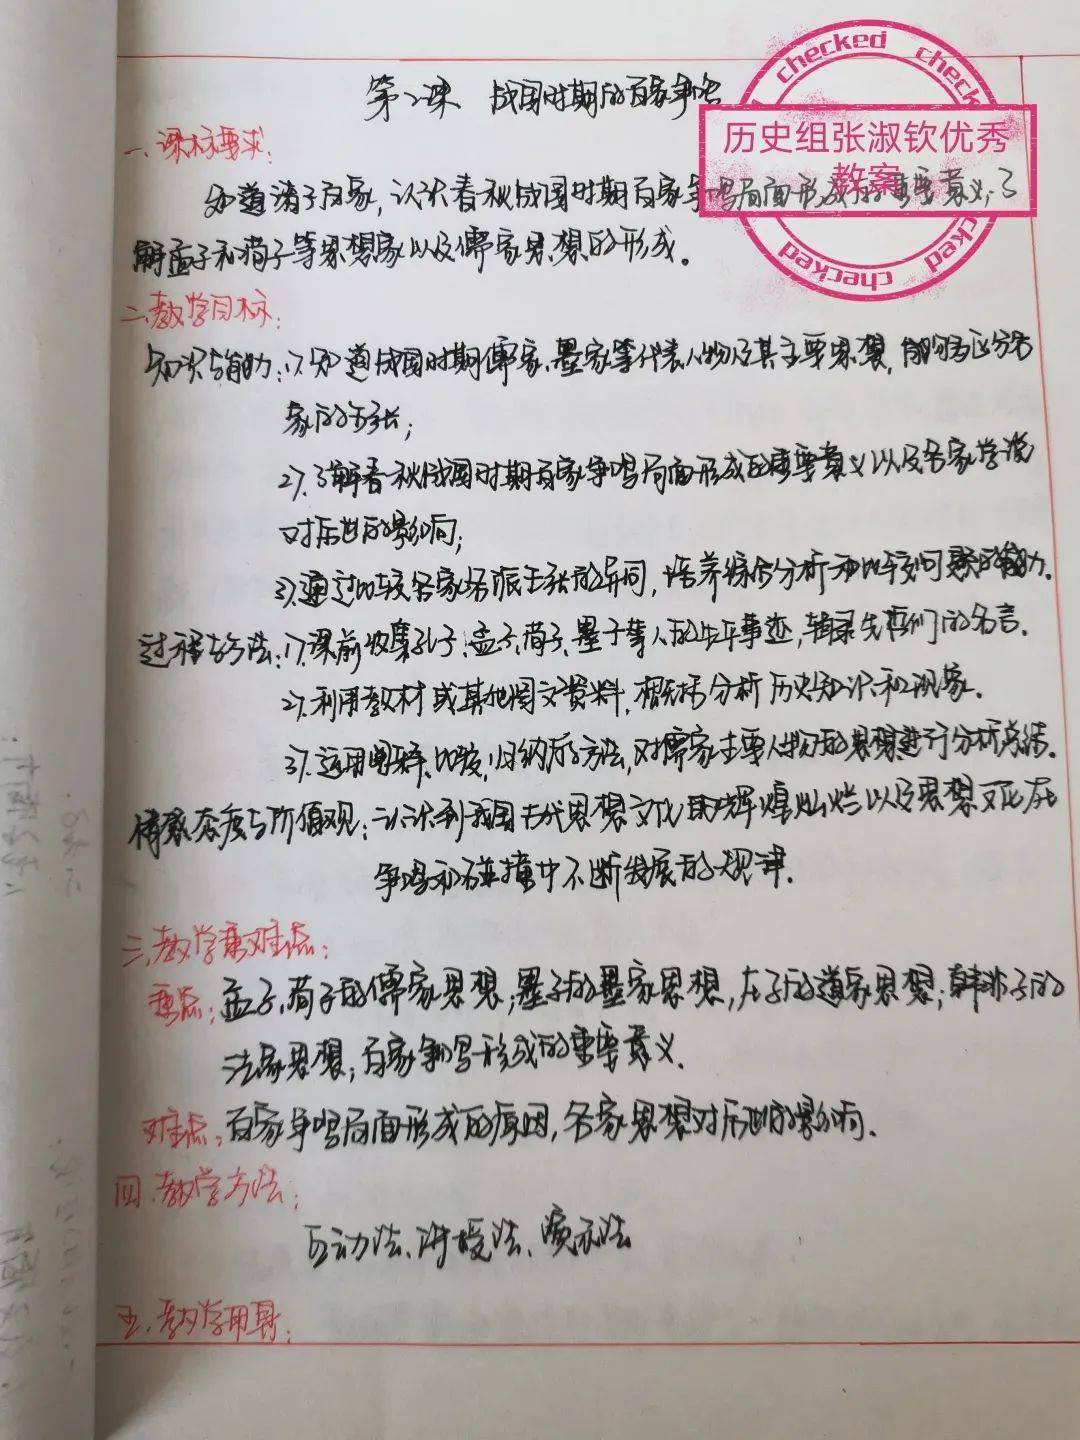 第2课 战国时期的百家争鸣
一、课标要求:
知道诸子百家,认识春秋战国时期百家争鸣局面形成的重要意义;了
解孟子和荀子等思想家以及儒家思想的形成。
二、教学目标:
知识与能力:1).知道战国时期儒家、墨家等代表人物及其主要思想,能够区分各
家的主张;
2).了解春秋战国时期百家争鸣局面形成的重要意义以及各家学说
对后世的影响;
3).通过比较各家各派主张的异同,培养综合分析和比较问题的能力.
过程与方法:1).课前收集孔子、孟子、荀子、墨子等人的生平事迹,辑录先哲们的名言.
2).利用教材或其他图文资料,概括分析历史知识和现象.
3).运用阐释、比较,归纳的方法,对儒家主要人物的思想进行分析总结.
情感态度与价值观:认识到我国古代思想文化的辉煌灿烂以及思想文化在
争鸣和碰撞中不断发展的规律.
三、教学重难点:
重点:孟子、荀子的儒家思想;墨子的墨家思想,庄子的道家思想;韩非子的
法家思想;百家争鸣形成的重要意义.
难点:百家争鸣局面形成的原因,各家思想对后世的影响.
四、教学方法:
互动法、讲授法、演示法
五、教学用具:
checked checked
历史组张淑钦优秀
教案
checked checked